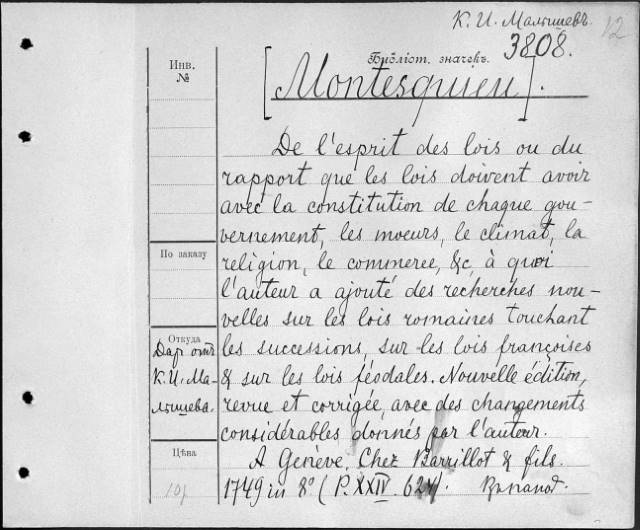 К. И. Малышевъ. 12
Библіот. значекъ. 3808.
Инв.
№
[Montesquieu].
De l'esprit des lois ou du
rapport que les lois doivent avoir
avec la constitution de chaque gou-
vernement, les moeurs, le climat, la
religion, le commerce, &c, à quoi
l'auteur a ajouté des recherches nou-
velles sur les lois romaines touchant
les successions, sur les lois françoises
& sur les lois féodales. Nouvelle édition,
revue et corrigée, avec des changements
considérables donnés par l'auteur.
A Genève, Chez Barrillot & fils.
1749 in 8° (P. XXIV.
По заказу
Откуда
Даръ отъ
К. И. Ма-
лышева.
Цѣна